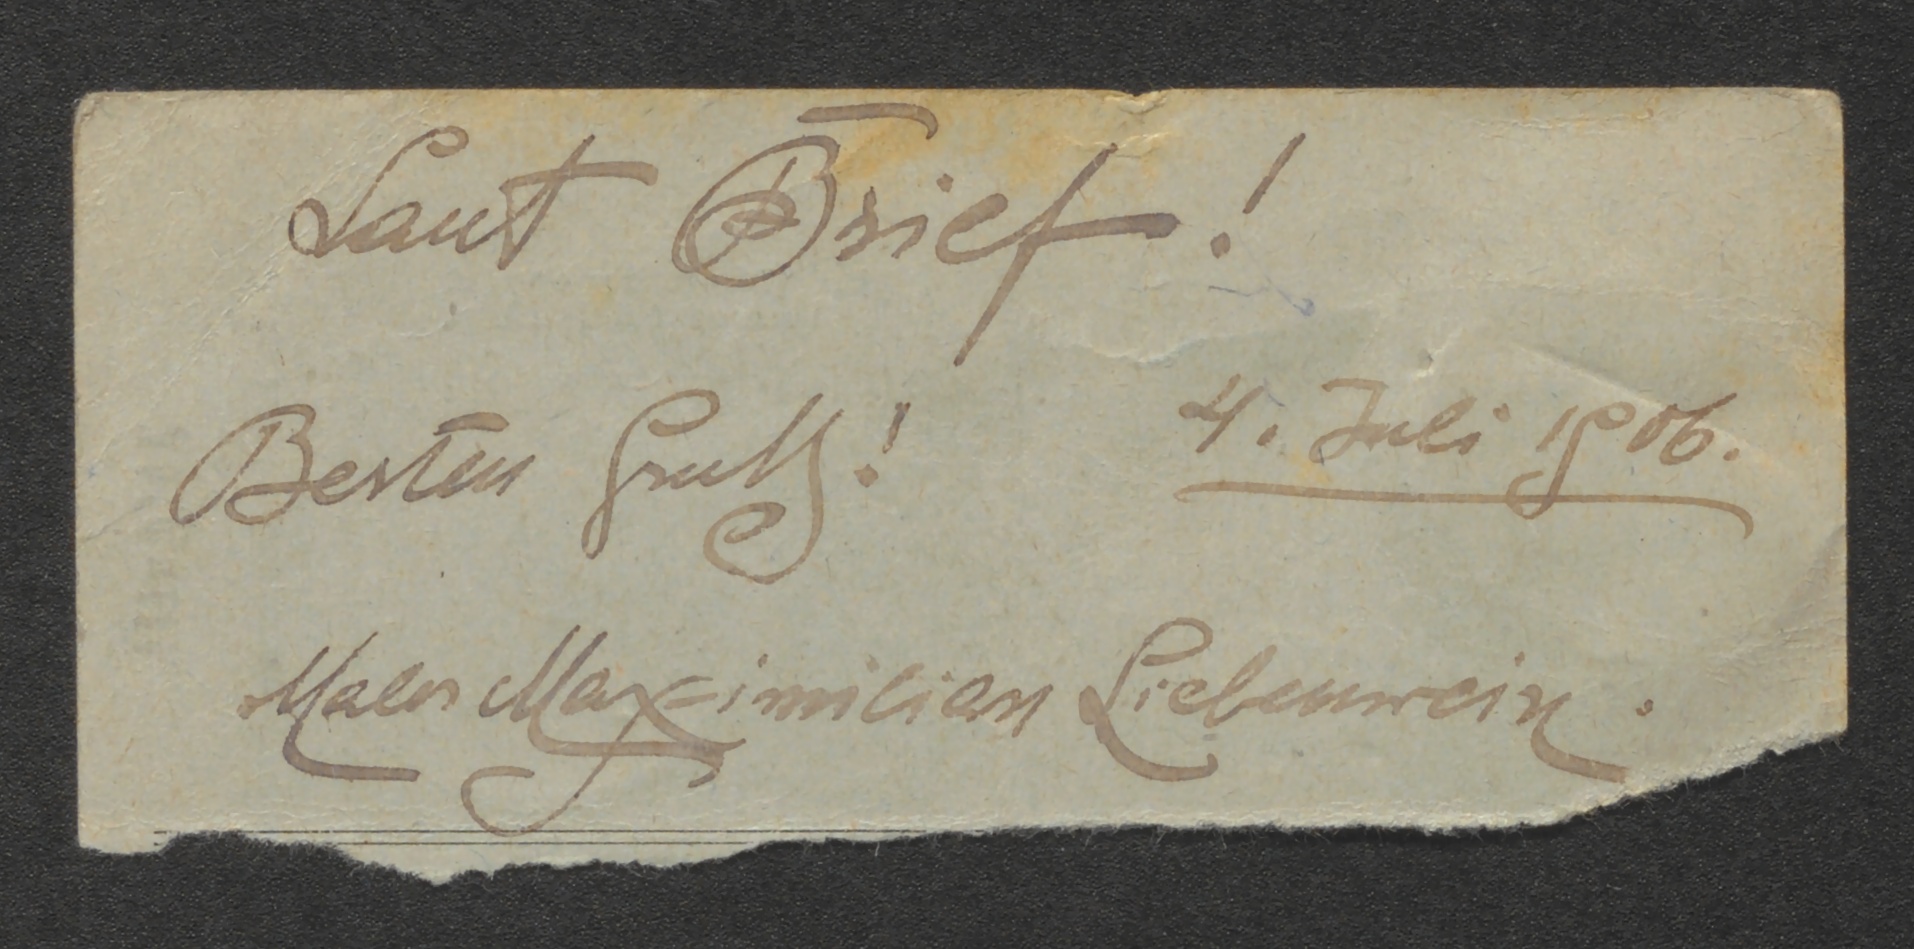 Laut Brief!
Besten Gruß! 4. Juli 1906.
Maler Maximilian Liebenwein.